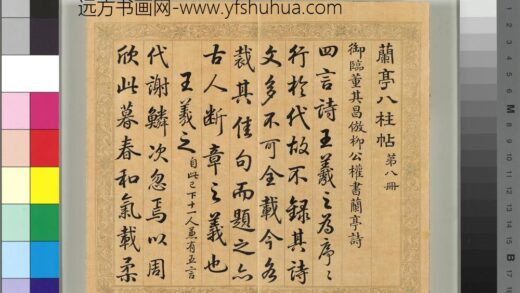 远方书画网-www.yfshuhua.com
蘭亭八柱帖 第八冊
御臨董其昌倣柳公權書蘭亭詩
四言詩王羲之為序序
行於代故不錄其詩
文多不可全載今各
裁其佳句而題之亦
古人断章之義也
王羲之 自此已下十一人兼有五言
代謝鱗次忽焉以周
欣此暮春和氣載柔